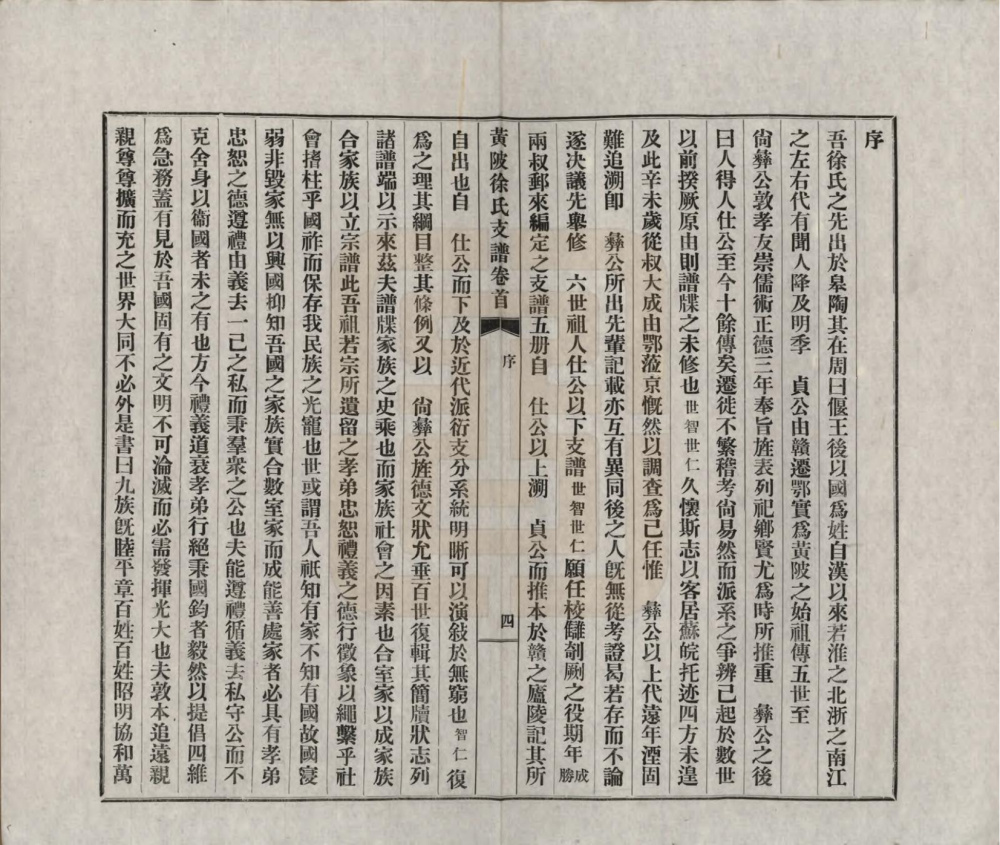 序
吾徐氏之先出於臯陶其在周曰偃王後以國爲姓自漢以來若淮之北浙之南江
之左右代有聞人降及明季　貞公由贛遷鄂實爲黃陂之始祖傳五世至
尙彝公敦孝友崇儒術正德三年奉旨旌表列祀鄉賢尤爲時所推重　彝公之後
曰人得人仕公至今十餘傳矣遷徙不繁稽考尙易然而派系之爭辨已起於數世
以前揆厥原由則譜牒之未修也世智世仁久懷斯志以客居蘇皖托迹四方未遑
及此辛未歲從叔大成由鄂蒞京慨然以調查爲己任惟　彝公以上代遠年湮固
難追溯卽　彝公所出先輩記載亦互有異同後之人旣無從考證曷若存而不論
遂決議先舉修　六世祖人仕公以下支譜世智世仁願任校讎剞劂之役期年成勝
兩叔郵來編定之支譜五册自　仕公以上溯　貞公而推本於贛之廬陵記其所
黃陂徐氏支譜卷首　序　四
自出也自　仕公而下及於近代派衍支分系統明晰可以演敍於無窮也智仁復
爲之理其綱目整其條例又以　尙彝公旌德文狀允垂百世復輯其簡牘狀志列
諸譜端以示來茲夫譜牒家族之史乘也而家族社會之因素也合室家以成家族
合家族以立宗譜此吾祖若宗所遺留之孝弟忠恕禮義之德行徵象以繩繫乎社
會搘柱乎國祚而保存我民族之光寵也世或謂吾人祇知有家不知有國故國寖
弱非毀家無以興國抑知吾國之家族實合數室家而成能善處家者必具有孝弟
忠恕之德遵禮由義去一己之私而秉羣衆之公也夫能遵禮循義去私守公而不
克舍身以衞國者未之有也方今禮義道衰孝弟行絕秉國鈞者毅然以提倡四維
爲急務蓋有見於吾國固有之文明不可淪滅而必需發揮光大也夫敦本追遠親
親尊尊擴而充之世界大同不必外是書曰九族旣睦平章百姓百姓昭明協和萬